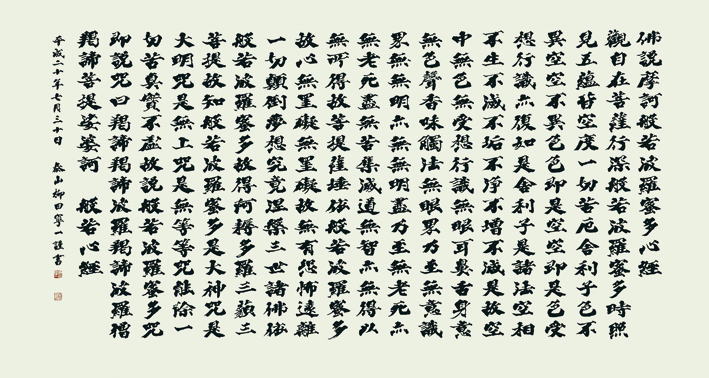 佛説摩訶般若波羅蜜多心經
觀自在菩薩行深般若波羅蜜多時照
見五蘊皆空度一切苦厄舍利子色不
異空空不異色色即是空空即是色受
想行識亦復如是舍利子是諸法空相
不生不滅不垢不淨不增不減是故空
中無色無受想行識無眼耳鼻舌身意
無色聲香味觸法無眼界乃至無意識
界無無明亦無無明盡乃至無老死亦
無老死盡無苦集滅道無智亦無得以
無所得故菩提薩埵依般若波羅蜜多
故心無罣礙無罣礙故無有恐怖遠離
一切顛倒夢想究竟涅槃三世諸佛依
般若波羅蜜多故得阿耨多羅三藐三
菩提故知般若波羅蜜多是大神咒是
大明咒是無上咒是無等等咒能除一
切苦真實不虛故説般若波羅蜜多咒
即説咒曰羯諦羯諦波羅羯諦波羅僧
羯諦菩提娑婆訶 般若心經
平成二十年七月三十日 泰山柳田寧一謹書